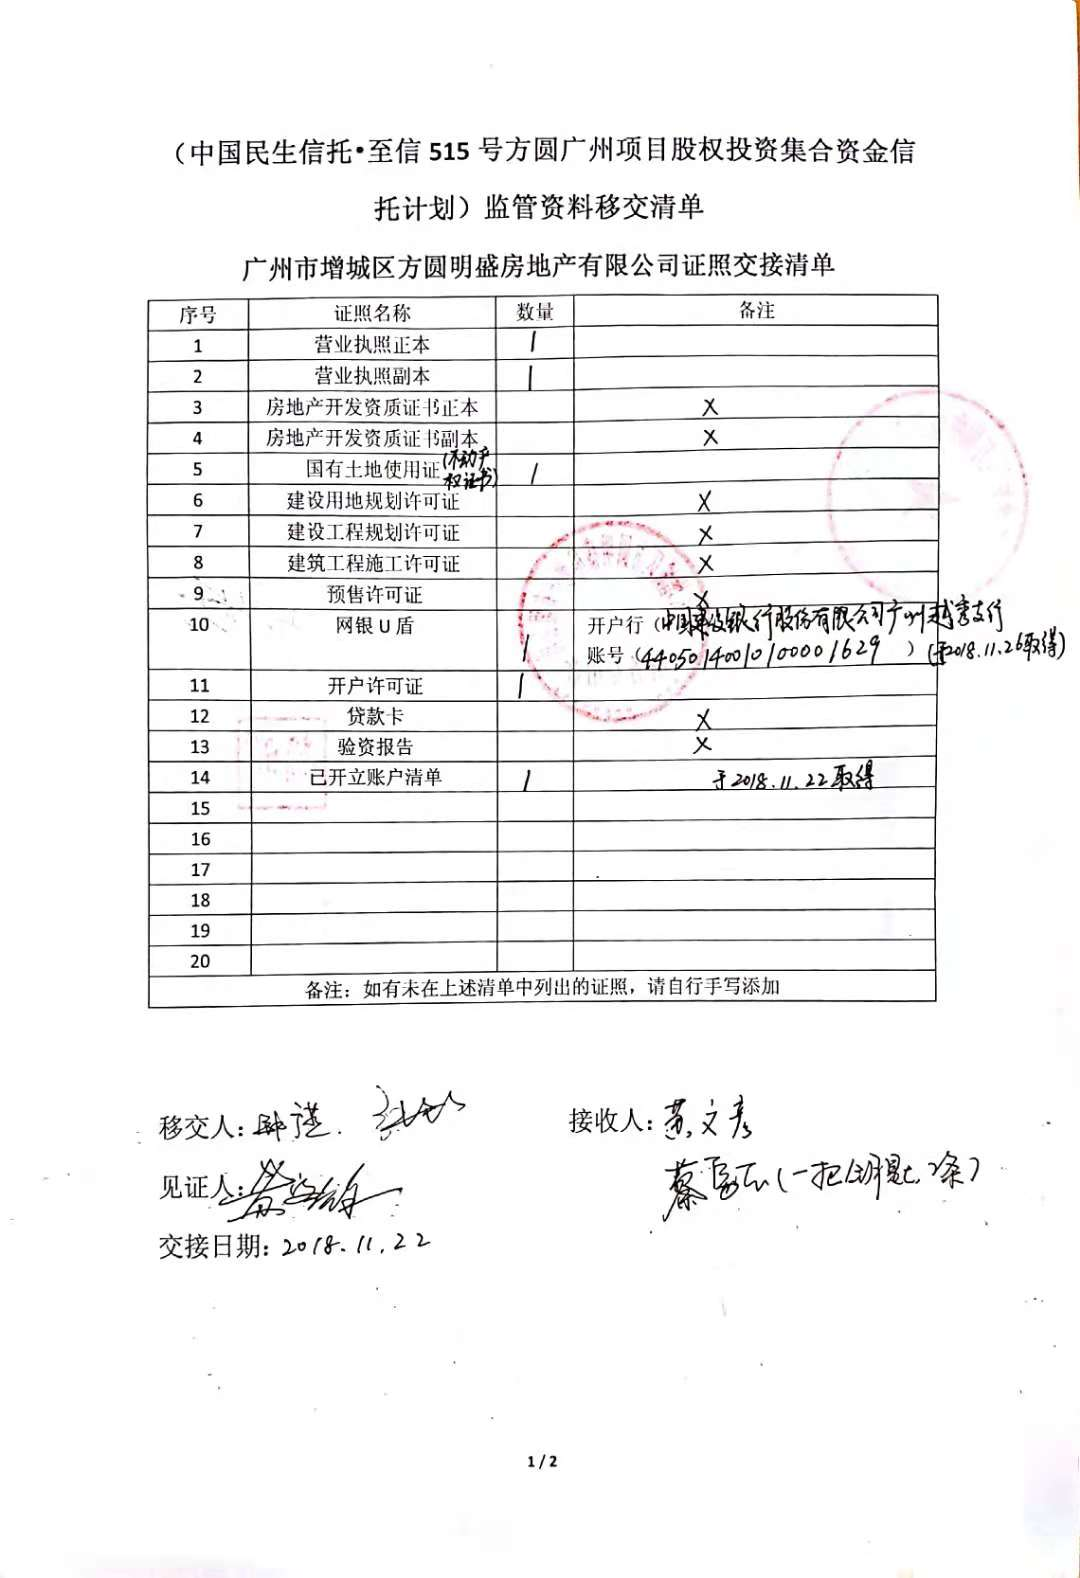 （中国民生信托•至信 515 号方圆广州项目股权投资集合资金信
托计划）监管资料移交清单
广州市增城区方圆明盛房地产有限公司证照交接清单
序号 证照名称 数量 备注
1 营业执照正本 1
2 营业执照副本 1
3 房地产开发资质证书正本 X
4 房地产开发资质证书副本 X
5 国有土地使用证(不动产权证书) 1
6 建设用地规划许可证 X
7 建设工程规划许可证 X
8 建筑工程施工许可证 X
9 预售许可证 X
10 网银 U 盾 1 开户行（中国建设银行股份有限公司广州越秀支行
账号（44050140010100001629 ）(于2018.11.26取得)
11 开户许可证 1
12 贷款卡 X
13 验资报告 X
14 已开立账户清单 1 于2018.11.22取得
15
16
17
18
19
20
备注：如有未在上述清单中列出的证照，请自行手写添加
移交人: 接收人: 黄文彦
(一把钥匙,2条)
见证人:
交接日期: 2018.11.22
1 / 2